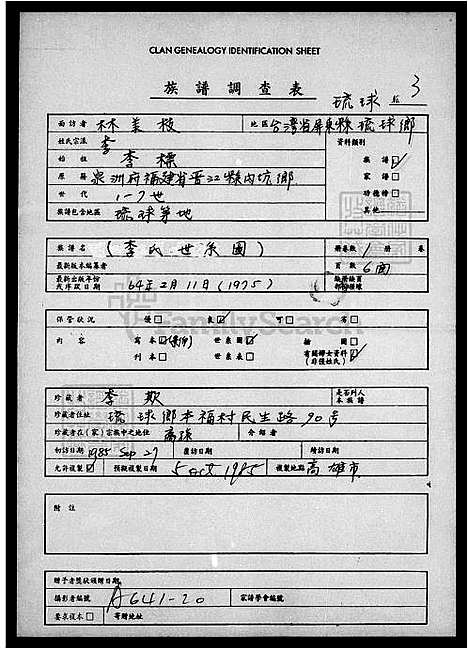 CLAN GENEALOGY IDENTIFICATION SHEET
族譜調查表
琉球 3
面訪者 林美枝 地區 台灣省屏東縣琉球鄉
姓氏宗派 李 資料類別
始祖 李標 族譜 ☑
原籍 泉州府福建省晋江縣內坑鄉 家譜 □
世代 1-7世 功德榜 □
族譜包含地區 琉球等地 其他
族譜名 (李氏世系圖) 冊卷數 1 冊 卷
最新版本編纂者 頁數 6面
最新出版年份或序跋日期 64年2月11日(1975)
保管狀況 優□ 良☑ 可□ 劣□
內容 寫本☑(影印) 世系圖☑ 繪圖□
刊本□ 世系表□ 有關婦女資料(非僅姓氏)☑
珍藏者 李欺 是否列入本族譜
珍藏者住址 琉球鄉本福村民生路90号
珍藏者在(家)宗族中之地位 高孫 介紹者
初訪日期 1985 Sep 27 覆訪日期 續訪日期
允許複製☑ 預擬複製日期 5 oct 1985 複製地點 高雄市
附註
贈予者獎狀頒贈日期
攝影者編號 A641-20 家譜學會編號
要求複本□ 寄贈地址
FamilySearch